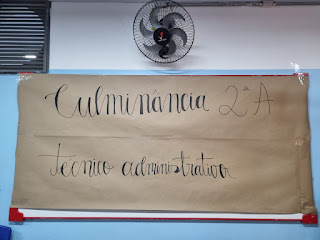 Culminância 2ª A
técnico administrativo